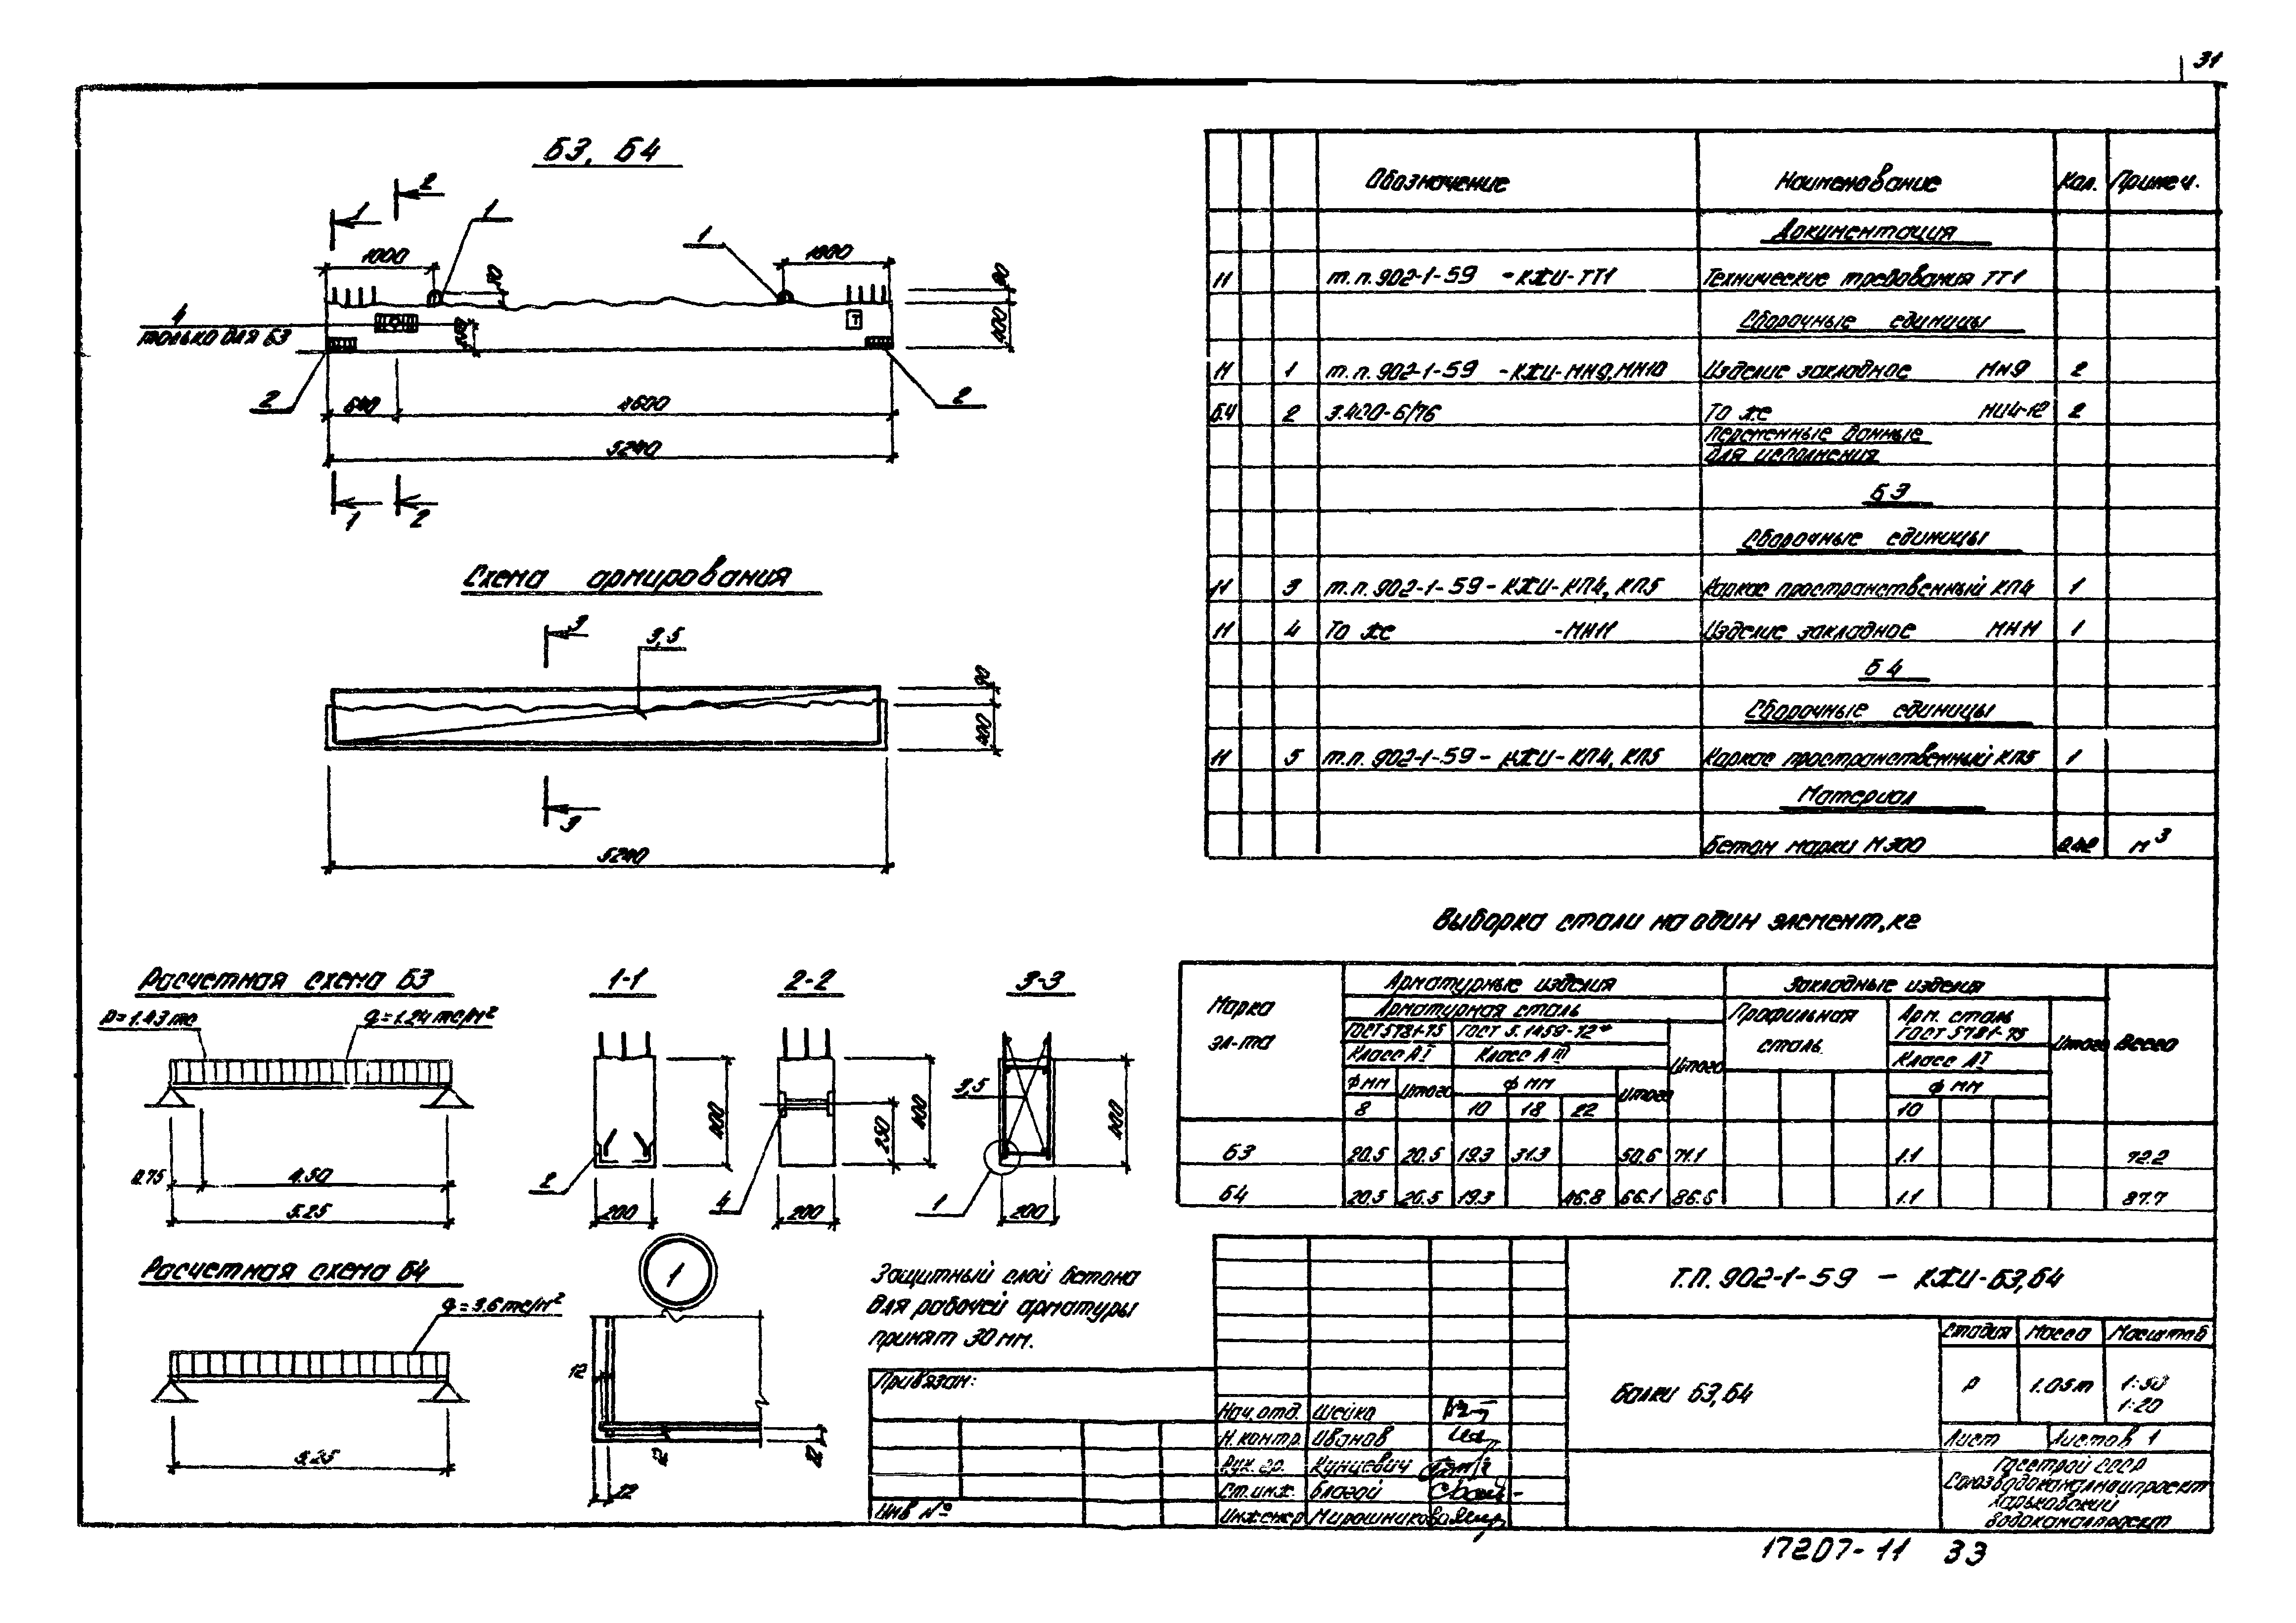 31
Б3, Б4
2
1
1
1
1000
1000
90
400
4
только для Б3
2
2
640
4600
5240
1
2
Схема армирования
3
3,5
90
400
3
5240
Расчетная схема Б3
р=1.43 тс
q=1.24 тс/м²
0.75
4.50
5.25
1-1
400
2
200
2-2
400
250
4
200
3-3
3,5
400
1
200
Расчетная схема Б4
q=3.6 тс/м²
5.25
1
12
22
Защитный слой бетона
для рабочей арматуры
принят 30 мм.
Обозначение Наименование Кол. Примеч.
Документация
И т.п. 902-1-59 -КЖИ-ТТ1 Технические требования ТТ1
Сборочные единицы
И 1 т.п. 902-1-59 -КЖИ-МН9, МН10 Изделие закладное МН9 2
Б4 2 3.400-6/76 То же 2
Переменные данные
для исполнения
Б3
Сборочные единицы
И 3 т.п. 902-1-59-КЖИ-КП4, КП5 Каркас пространственный КП4 1
И 4 То же -МН11 Изделие закладное МН11 1
Б4
Сборочные единицы
И 5 т.п. 902-1-59-КЖИ-КП4, КП5 Каркас пространственный КП5 1
Материал
Бетон марки М300 0.42 м³
Выборка стали на один элемент, кг
Марка эл-та
Арматурные изделия Закладные изделия
Арматурная сталь Профильная сталь Арм. сталь
ГОСТ 5781-75 ГОСТ 5.1459-72* ГОСТ 5781-75
Класс АI Класс АIII Итого Класс АI Итого Всего
ф мм Итого ф мм Итого ф мм
8 10 18 22 10
Б3 20.5 20.5 19.3 31.3 50.6 71.1 1.1 72.2
Б4 20.5 20.5 19.3 46.8 66.1 86.6 1.1 87.7
Т.П. 902-1-59 - КЖИ-Б3,Б4
Балки Б3,Б4
Стадия Масса Масштаб
Р 1.05т 1:50
1:20
Лист Листов 1
Госстрой СССР
Союзводоканалниипроект
Харьковский
Водоканалпроект
Привязан:
Инв №
Нач.отд. Шейко
Н.контр. Иванов
Рук. гр. Кунцевич
Ст.инж. Благой
Инженер Мирошникова
17207-11 33